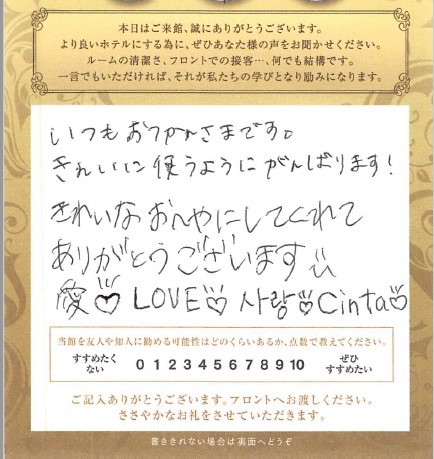 本日はご来館、誠にありがとうございます。
より良いホテルにする為に、ぜひあなた様の声をお聞かせください。
ルームの清潔さ、フロントでの接客…、何でも結構です。
一言でもいただければ、それが私たちの学びとなり励みになります。
いつもおつかれさまです。
きれいに使うようにがんばります!
きれいなおへやにしてくれて
ありがとうございます
愛♡LOVE♡사랑♡Cinta♡
当館を友人や知人に勧める可能性はどのくらいあるか、点数で教えてください。
すすめたくない 0 1 2 3 4 5 6 7 8 9 10 ぜひすすめたい
ご記入ありがとうございます。フロントへお渡しください。
ささやかなお礼をさせていただきます。
書ききれない場合は裏面へどうぞ